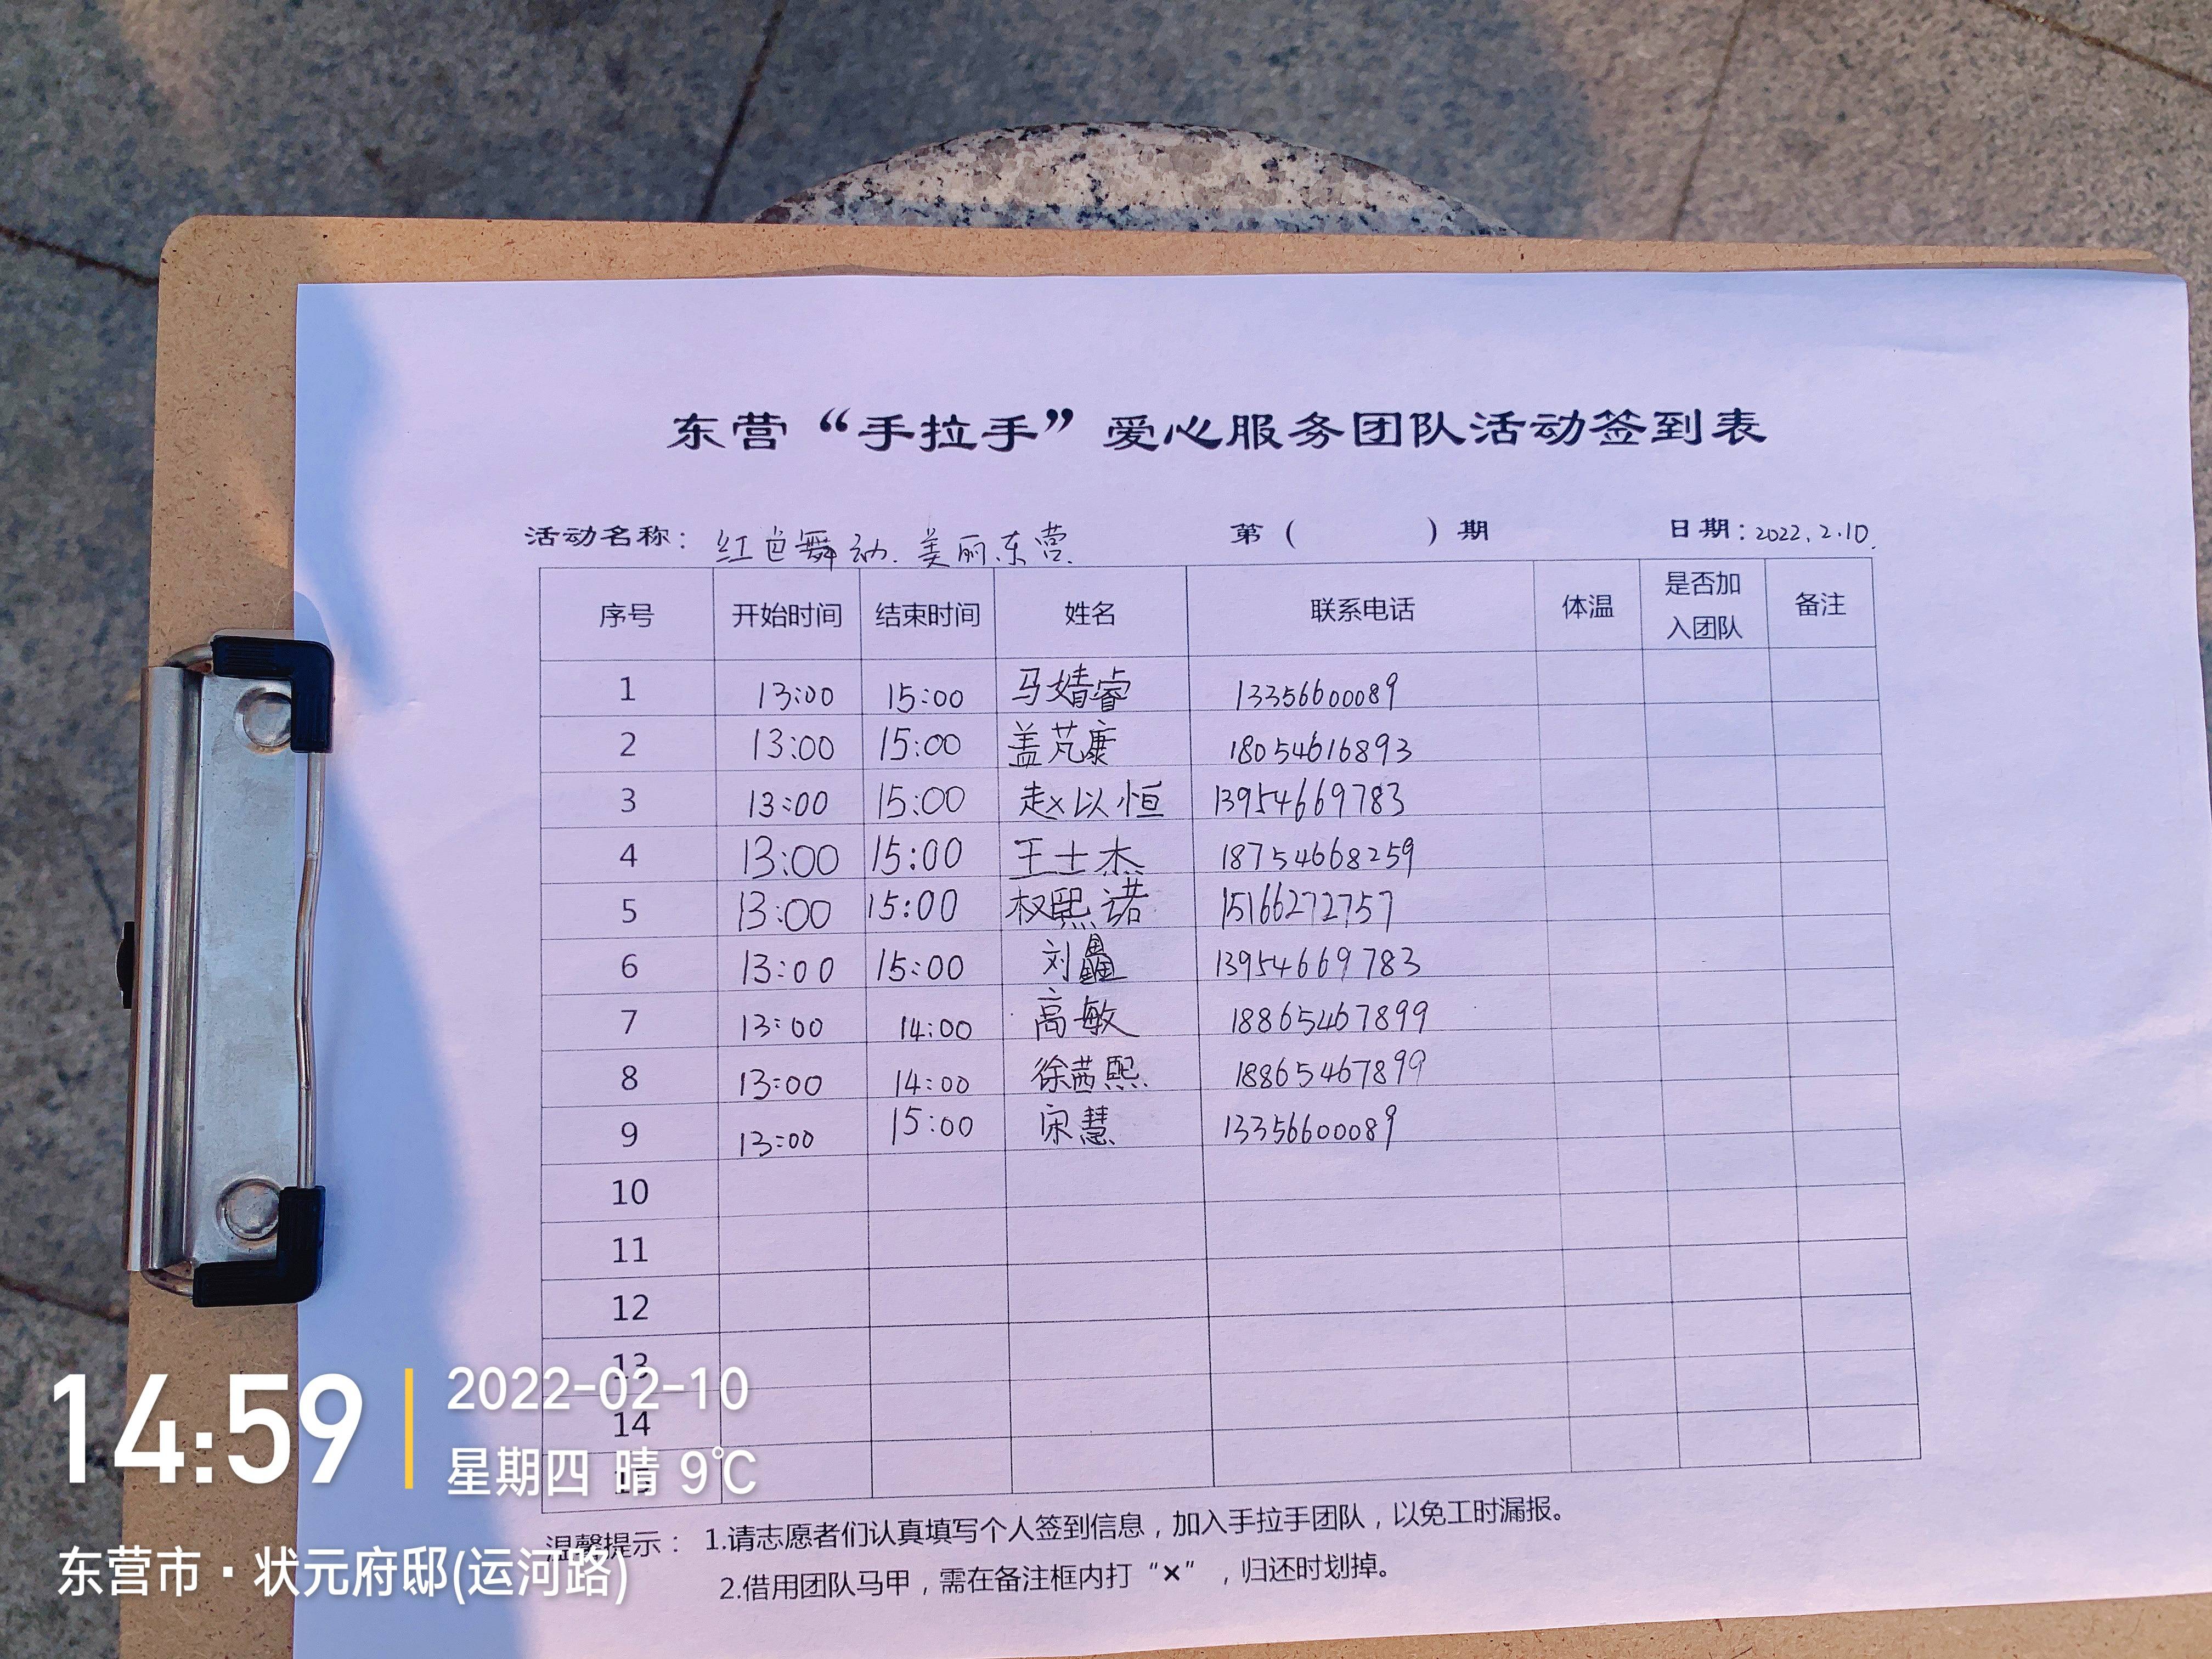 东营“手拉手”爱心服务团队活动签到表
活动名称：红色舞动.美丽东营. 第（ ）期 日期：2022.2.10.
序号 开始时间 结束时间 姓名 联系电话 体温 是否加入团队 备注
1 13:00 15:00 马婧睿 13356600089
2 13:00 15:00 盖芃康 18054616893
3 13:00 15:00 赵以恒 13954669783
4 13:00 15:00 王士杰 18754668259
5 13:00 15:00 权熙诺 15166272757
6 13:00 15:00 刘 13954669783
7 13:00 14:00 高敏 18865467899
8 13:00 14:00 徐茜熙 18865467899
9 13:00 15:00 宋慧 13356600089
10
11
12
13
14
15
温馨提示：1.请志愿者们认真填写个人签到信息，加入手拉手团队，以免工时漏报。
2.借用团队马甲，需在备注框内打“×”，归还时划掉。
14:59
2022-02-10
星期四 晴 9℃
东营市·状元府邸(运河路)